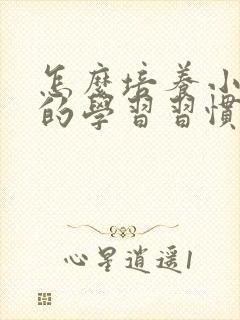 怎麼培養小
的學習習慣
心星逍遥1